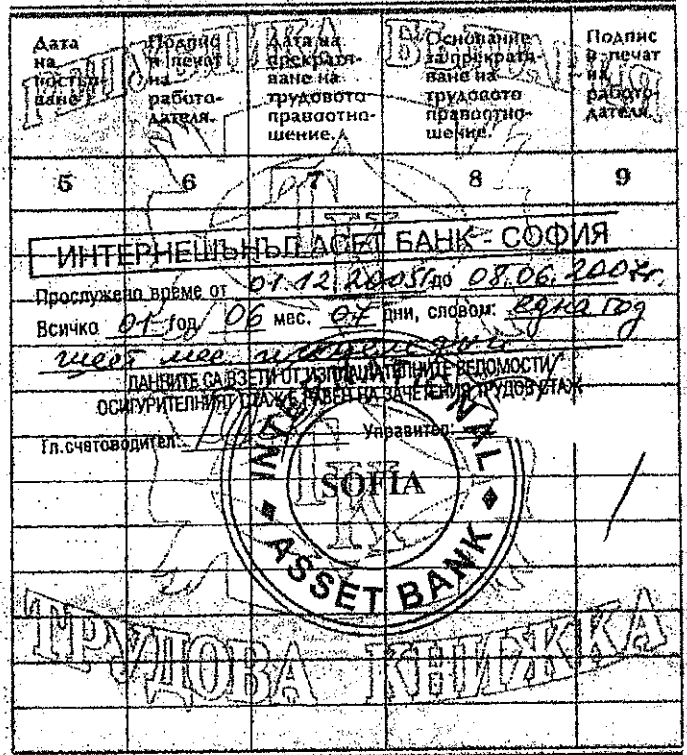 Дата на постъпване
Подпис и печат на работодателя.
Дата на прекратяване на трудовото правоотношение.
Основание за прекратяване на трудовото правоотношение.
Подпис и печат на работодателя.
5 6 7 8 9
ИНТЕРНЕШЪНЪЛ АСЕТ БАНК - СОФИЯ
Прослужено време от 01.12.2005г до 08.06.2007г.
Всичко 01 год 06 мес. 07 дни, словом: една год
шест мес и седем дни
ДАННИТЕ СА ВЗЕТИ ОТ ИЗПЛАЩАТЕЛНИТЕ ВЕДОМОСТИ
ОСИГУРИТЕЛНИЯТ СТАЖ Е РАВЕН НА ЗАЧЕТЕНИЯ ТРУДОВ СТАЖ
Гл.счетоводител: Управител:
INTERNATIONAL ASSET BANK
SOFIA
ТРУДОВА КНИЖКА